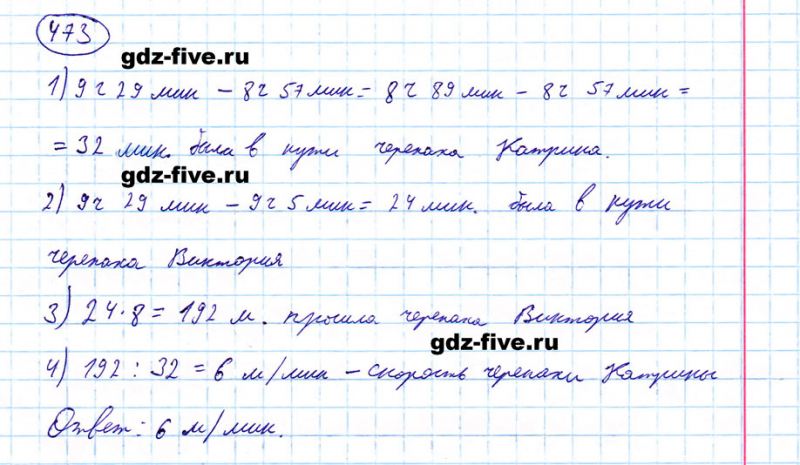 473
gdz-five.ru
1) 9 ч 29 мин - 8 ч 57 мин = 8 ч 89 мин - 8 ч 57 мин =
= 32 мин. была в пути черепаха Катрина.
gdz-five.ru
2) 9 ч 29 мин - 9 ч 5 мин = 24 мин. была в пути
черепаха Виктория
3) 24 · 8 = 192 м. прошла черепаха Виктория
gdz-five.ru
4) 192 : 32 = 6 м/мин - скорость черепахи Катрины
Ответ: 6 м/мин.